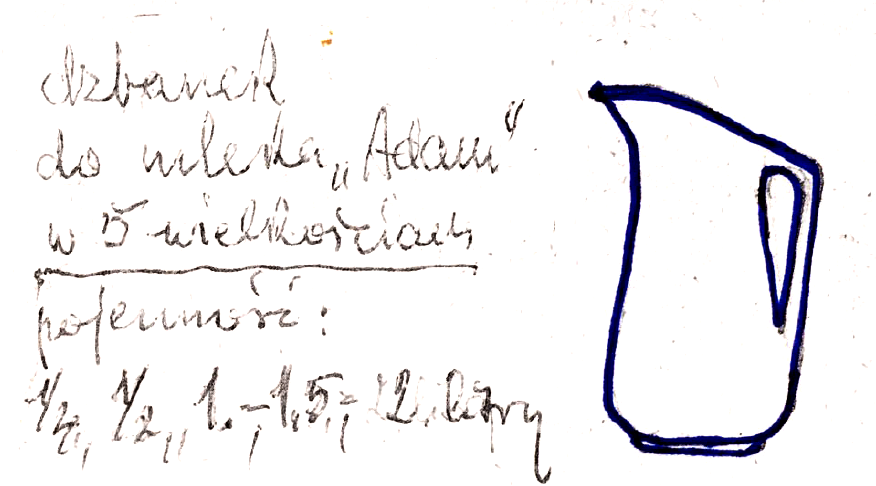 dzbanek
do mleka „Adam"
w 5 wielkościach
pojemność:
1/2, 1,- 1,5,- 2 litry